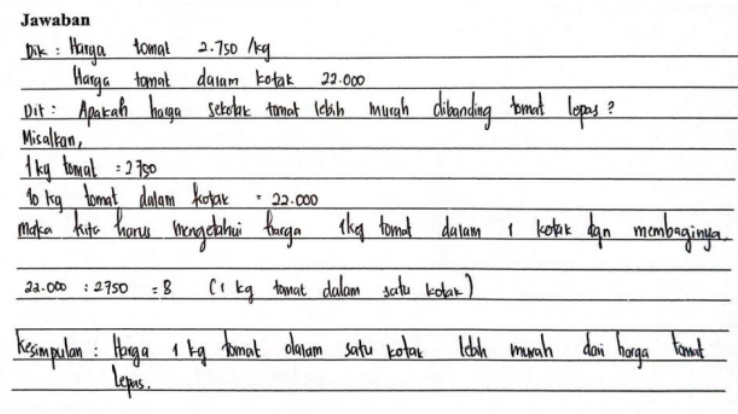 Jawaban
Dik : Harga tomat 2.750 /kg
Harga tomat dalam kotak 22.000
Dit : Apakah harga sekotak tomat lebih murah dibanding tomat lepas ?
Misalkan,
1 kg tomat = 2750
10 kg tomat dalam kotak = 22.000
Maka kita harus mengetahui harga 1kg tomat dalam 1 kotak dgn membaginya.
22.000 : 2750 = 8 (1 kg tomat dalam satu kotak)
Kesimpulan : Harga 1 kg tomat dalam satu kotak lebih murah dari harga tomat
lepas.